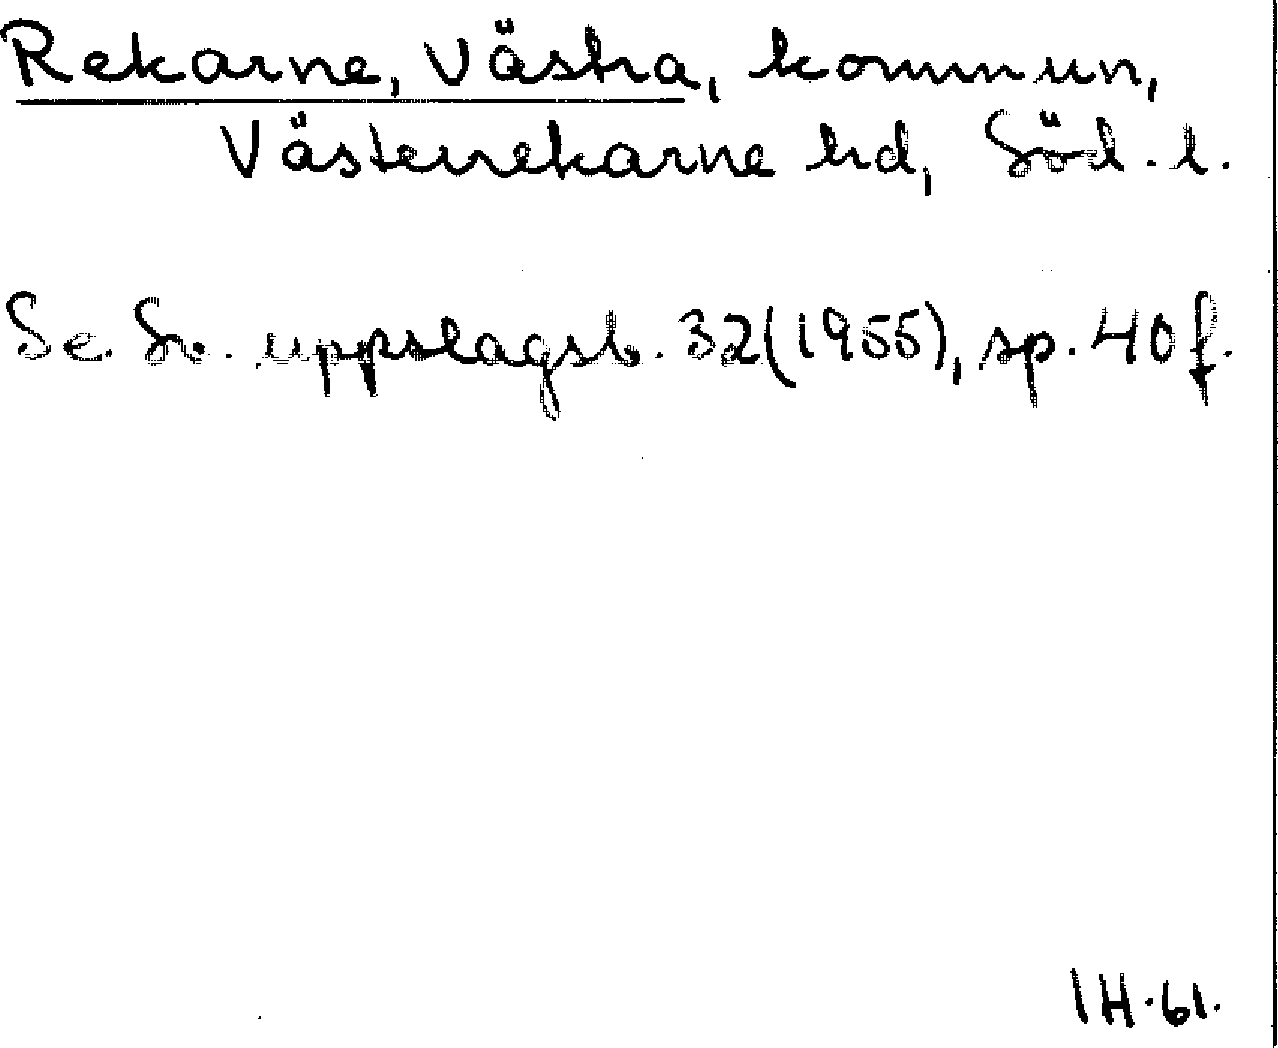 Rekarne, Västra, kommun,
Västerrekarne hd, Söd. l.
Se. Sv. uppslagsb. 32(1955), sp. 40 f.
IH. 61.